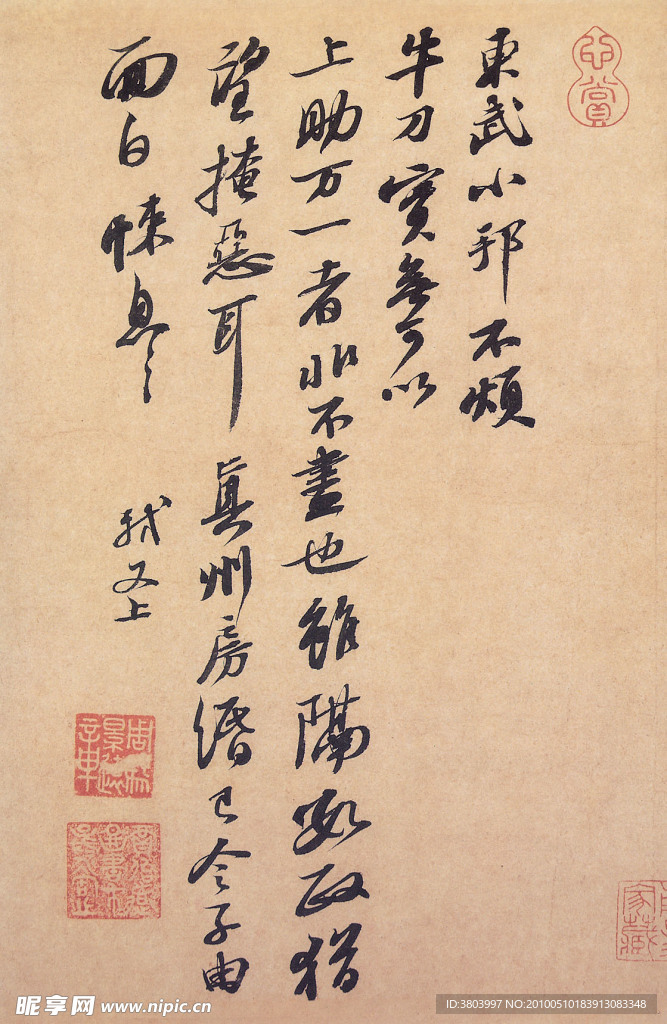 東武小邦不煩
牛刀實無可以
上助万一者非不盡也雖隔數政猶
望掩惡耳 真州房緡已令子由
面白悚息〻 軾又上
賞
家藏
昵享网 www.nipic.cn
ID:3803997 NO:20100510183913083348